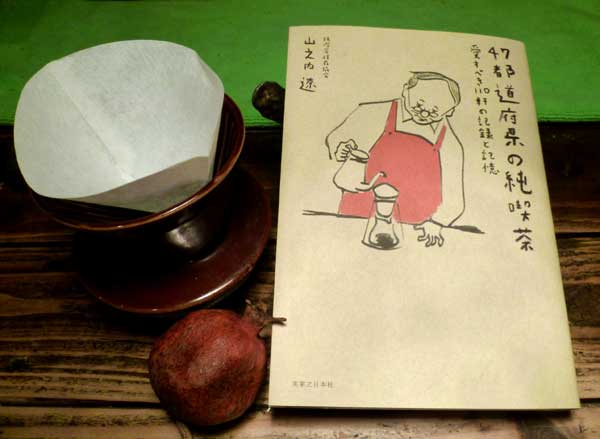 47都道府県の純喫茶
愛すべき110軒の記録と記憶
山之内遼
実業之日本社